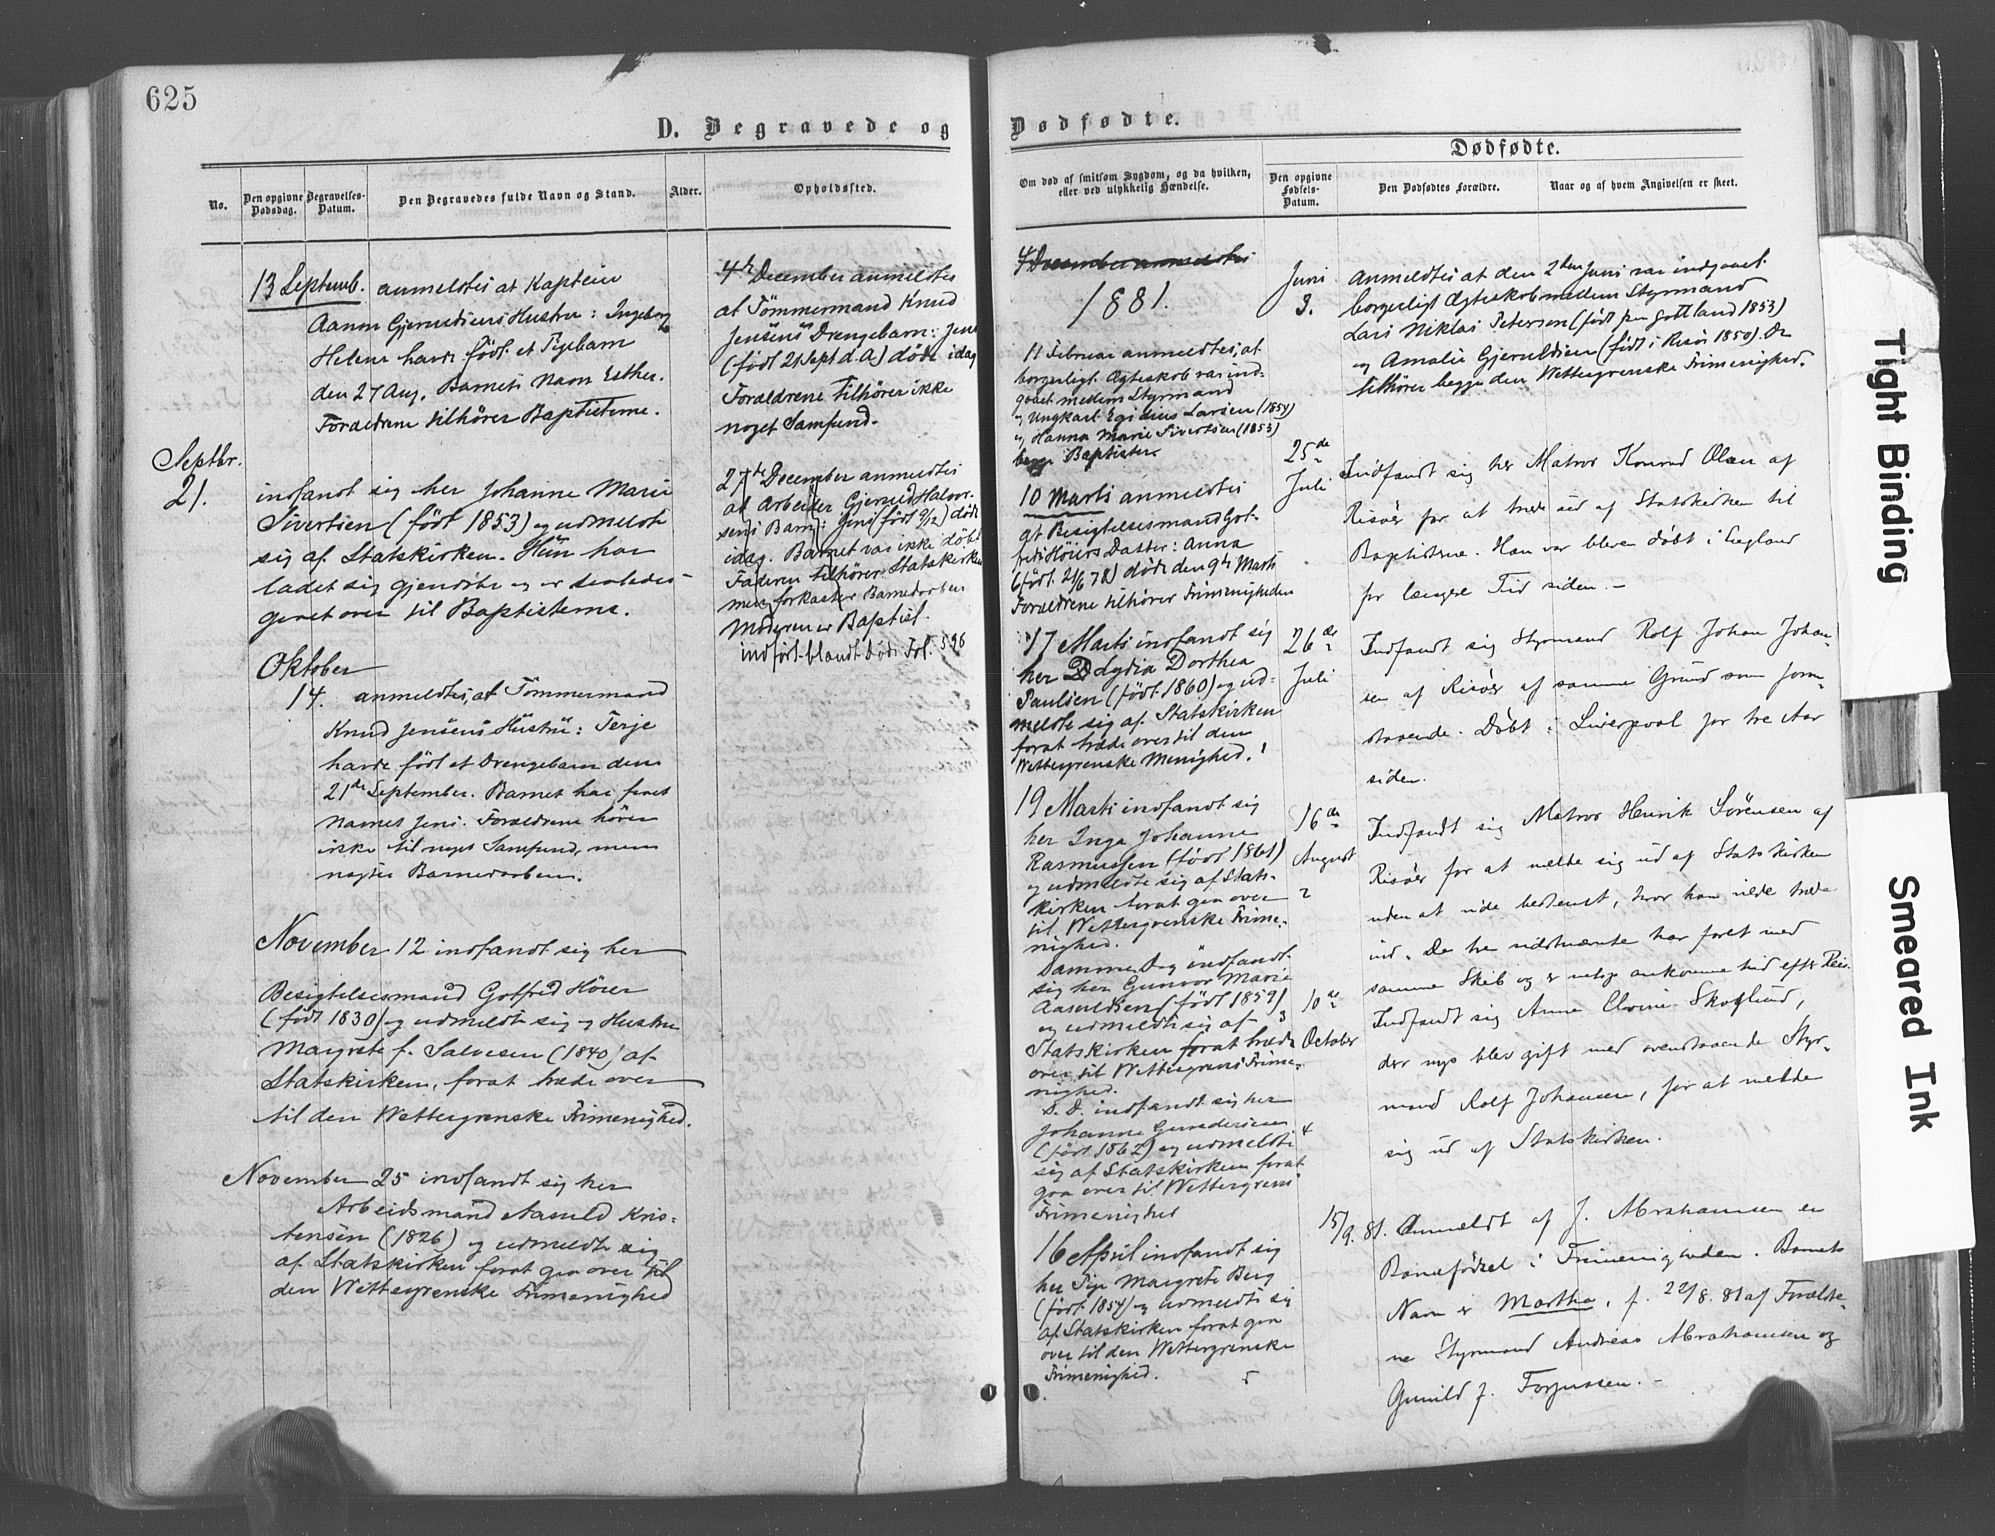 625
D. Begravede og
No.
Den opgivne Dødsdag.
Begravelses-Datum.
Den Begravedes fulde Navn og Stand.
Alder.
Opholdssted.
13 Septemb. anmeldtes at Kaptein
Aanon Gjeruldsens Hustru: Ingeborg
Helene havde født et Pigebarn
den 27 Aug. Barnets Navn Esther.
Forældrene tilhører Baptisterne.
Septbr.
21.
indfandt sig her Johanne Marie
Sivertsen (født 1853) og udmeldte
sig af Statskirken. Hun har
ladet sig gjendøbe og er saaledes
gaaet over til Baptisterne.
Oktober
14. anmeldtes, at Tømmermand
Knud Jensens Hustru: Terje
havde født et Drengebarn den
21de September. Barnet har faaet
Navnet Jens. Forældrene hører
ikke til noget Samfund, men
Barnedaaben.
November 12 indfandt sig her
Besigtelsesmand Gotfred Höier
(født 1830) og udmeldte sig og Hustru
Margrete f. Salvesen (1840) af
Statskirken, forat træde over
til den Wettergrenske Frimenighed.
November 25 indfandt sig her
Arbeidsmand Aasuld Kris-
tensen (1826) og udmeldte sig
af Statskirken forat gaa over til
den Wettergrenske Frimenighed
4de December anmeldtes
at Tømmermand Knud
Jensens Drengebarn: Jens
(født 21 Sept d.A.) døde idag
Forældrene tilhører ikke
noget Samfund.
27de December anmeldtes
at Arbeider Gjeruld Halvor-
sens Barn: Jens (født 9/12) døde
idag. Barnet var ikke døbt
Faderen tilhører Statskirken
men forkaster Barnedaaben
Moderen er Baptist.
indført blandt Døde Fol. 596
Dødfødte.
Om død af smitsom Sygdom, og da hvilken,
eller ved ulykkelig Hændelse.
Dødfødte.
Den opgivne Fødsels-Datum.
Den Dødfødtes Forældre.
Naar og af hvem Angivelsen er skeet.
4 December anmeldtes
1881.
11 Februar anmeldtes, at
borgerligt Ægteskab var ind-
gaaet mellem Styrmand
og Ungkarl Egidius Larsen (1854)
og Hanna Marie Sivertsen (1853)
begge Baptister.
10 Marts anmeldtes
at Besigtelsesmand Got-
freds Höiers Datter: Anna
(født 21/6 78) døde den 9de Marts
Forældrene tilhører Frimenigheden
17 Marts indfandt sig
her Lydia Dorthea
Paulsen (født 1860) og ud-
meldte sig af Statskirken
forat træde over til den
Wettergrenske Menighed.
19 Marts indfandt sig
her Inga Johanne
Rasmussen (født 1861)
og udmeldte sig af Stats-
kirken forat gaa over
til Wettergrenske Frime-
nighed.
Samme Dag indfandt
sig her Gunvor Marie
Aasuldsen (født 1859)
og udmeldte sig af
Statskirken forat træde
over til Wettergrens Frime-
nighed.
S. D. indfandt sig her
Johanne Gundersen
(født 1862) og udmeldte
sig af Statskirken forat
gaa over til Wettergrens
Frimenighed
16 April indfandt sig
her Pige Margrete Berg
(født 1854) og udmeldte sig
af Statskirken forat gaa
over til den Wettergrenske
Frimenighed.
Juni
3.
Anmeldtes at den 2den Juni var indgaaet
borgerligt Ægteskab mellem Styrmand
Lars Niklas Petersen (født paa Gottland 1853)
og Amalie Gjeruldsen (født i Risør 1850). De
tilhører begge den Wettergrenske Frimenighed.
25de
Juli
Indfandt sig her Matros Konrad Olsen af
Risöer for at træde ud af Statskirken til
Baptisterne. Han var bleven døbt i England
for længere Tid siden.-
26de
Juli
Indfandt sig Styrmand Rolf Johan Johan-
sen af Risöer af samme Grund som foran-
staaende. Døbt i Liverpool for tre Aar
siden.
16de
August
Indfandt sig Matros Henrik Sörensen af
Risöer for at melde sig ud af Statskirken
uden at vide bestemt, hvor han vilde træde
ind. De tre sidstnævnte har faret med
samme Skib og er netop ankomne hid efter Reis.
10de
October
Indfandt sig Anne Skoglund,
der nys blev gift med ovenstaaende Styr-
mand Rolf Johansen, for at melde
sig ud af Statskirken.
15/9. 81. Anmeldt af J. Abrahamsen en
Barnefødsel i Frimenigheden. Barnets
Navn er Martha, f. 22/8. 81 af Forældre-
ne Styrmand Andreas Abrahamsen og
Gunild f. Torjussen.-
Tight Binding
Smeared Ink